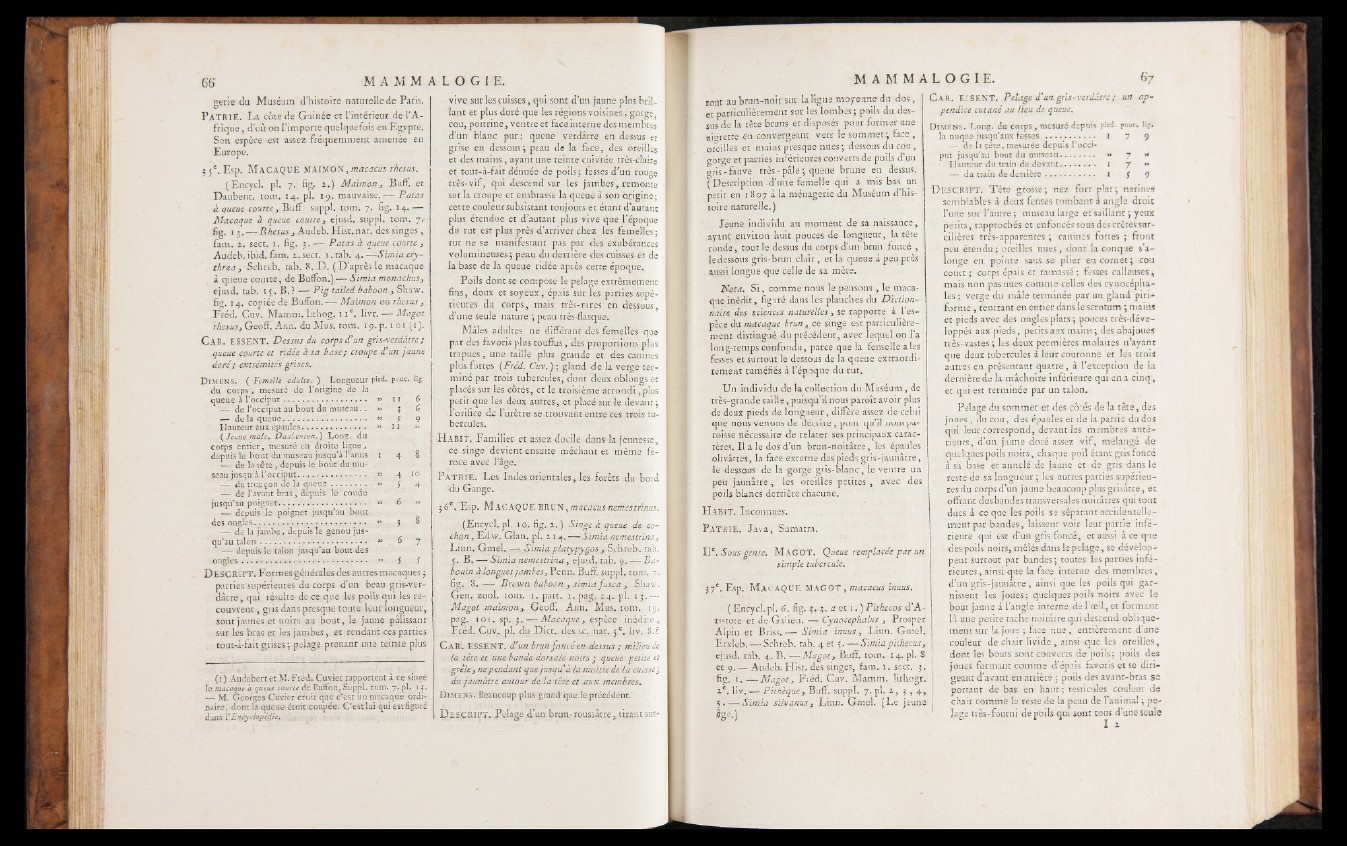 66
MAMMALOGIE.
gerie du Muséum d'histoire naturelle de Paris.
PATRIE. La côte de Guinée et l'intérieur de l'A-
frique, d'où on l'importe quelquefois en Egypte.
Son espèce est assez fréquemment amenée en
Europe.
35e. Esp. MACAQUE MAIMON, macacus rhesus.
(Encycl. pl. 7. fig. 2.) Maimon, Buff. et
Daubent. tom. 14. pl. 19. mauvaise. — Patas
à queue courte, Buff. suppl. tom. 7. fig. 14. —
Macaque à queue courte, ejusd. suppl. tom. 7.
fig. 13. — Rhesus, Audeb. Hist. nat. des singes,
fam. 2. sect. 1. fig. 3. — Patas à queue courte,
Audeb. ibid. fam. 2. sect. 1. tab. 4. — Simia ery-
thraea, Schreb. tab. 8. D. (D'après le macaque
à queue courte, de Buffon.) — Simia menachus,
ejusd. tab. 15. B.? — Pig tailed baboon, Shaw.
fig. 14. copiée de Buffon. — Maimon ou rhesus,
Fréd. Cuv. Mamm. lithog. 11e. livr. — Magot
rhesus, Geoff. Ann. du Mus. tom. 19. p. 101 (1).
CAR. ESSENT. Dessus du corps d'un gris-verdâtre;
queue courte et ridée à sa base; croupe d'un jaune
doré; extrémités grises.
DIMENS. (Femelle adulte.) Longueur pied. pouc. lig.
du corps, mesuré de l'origine de la
queue à l'occiput . . . . . » 11 6
— de l'occiput au bout du museau. . » 3 6
— de la queue . . . . . » 5 9
Hauteur aux épaules . . . . . » 11 »
(Jeune mâle. Daubenton.) Long. du
corps entier, mesuré en droite ligne,
depuis le bout du museau jusqu'à l'anus 1 4 8
— de la tête, depuis le bout du mu-
seau jusqu'à l'occiput . . . . . » 4 10
— du tronçon de la queue . . . . . » 5 4
— de l'avant bras, depuis le coude
jusqu'au poignet . . . . . » 6 »
— depuis le poignet jusqu'au bout
des ongles . . . . . » 3 8
— de la jambe, depuis le genou jus-
qu'au talon . . . . . » 6 7
— depuis le talon jusqu'au bout des
ongles . . . . . » 5 5
DESCRIPT. Formes générales des autres macaques;
parties supérieures du corps d'un beau gris-ver-
dâtre, qui résulte de ce que les poils qui les re-
couvrent, gris dans presque toute leur longueur,
sont jaunes et noirs au bout, le jaune pâlissant
sur les bras et les jambes, et rendant ces parties
tout-à-fait grises; pelage prenant une teinte plus
(1) Audebert et M. Fréd. Cuvier rapportent à ce singe
le macaque à queue courte de Buffon, Suppl. tom. 7. pl. 13.
— M. Georges Cuvier croit que c'est un macaque ordi-
naire, dont la queue étoit coupée. C'est lui qui est figuré
dans l'Encyclopédie.
vive sur les cuisses, qui sont d'un jaune plus bril-
lant et plus doré que les régions voisines; gorge,
cou, poitrine, ventre et face interne des membres
d'un blanc pur; queue verdâtre en dessus et
grise en dessous; peau de la face, des oreilles
et des mains, ayant une teinte cuivrée très-claire
et tout-à-fait dénuée de poils; fesses d'un rouge
très-vif, qui descend sur les jambes, remonte
sur la croupe et embrasse la queue à son origine;
cette couleur subsistant toujours et étant d'autant
plus étendue et d'autant plus vive que l'époque
du rut est plus près d'arriver chez les femelles;
rut ne se manifestant pas par des exubérances
volumineuses; peau du derrière des cuisses et de
la base de la queue ridée après cette époque.
Poils dont se compose le pelage extrêmement
fins, doux et soyeux, épais sur les parties supé-
rieures du corps, mais très-rares en dessous,
d'une seule nature; peau très-flasque.
Mâles adultes ne différant des femelles que
par des favoris plus touffus, des proportions plus
trapues, une taille plus grande et des canines
plus fortes (Fréd. Cuv.); gland de la verge ter-
miné par trois tubercules, dont deux oblongs et
placés sur les côtés, et le troisième arrondi, plus
petit que les deux autres, et placé sur le devant;
l'orifice de l'urètre se trouvant entre ces trois tu-
bercules.
HABIT. Familier et assez docile dans la jeunesse,
ce singe devient ensuite méchant et même fé-
roce avec l'âge.
PATRIE. Les Indes orientales, les forêts du bord
du Gange.
36e. Esp. MACAQUE BRUN, macacus nemestrinus.
(Encycl. pl. 10. fig. 2.) Singe à queue de co-
chon, Edw. Glan. pl. 214. — Simia nemestrina,
Linn. Gmel. — Simia platypygos, Schreb. tab.
5. B. — Simia nemestrina, ejusd. tab. 9. — Ba-
bouin à longues jambes, Penn. Buff. suppl. tom. 7.
fig. 8. — Brown baboon, simia fusca, Shaw.
Gen. zool. tom. 1. part. 1. pag. 24. pl. 13. —
Magot maimon, Geoff. Ann. Mus. tom. 19.
pag. 101. sp. 3. — Macaque, espèce inédite,
Fréd. Cuv. pl. du Dict. des sc. nat. 5e. liv. 8.?
CAR. ESSENT. d'un brun foncé en dessus; milieu de
la tête et une bande dorsale noirs; queue petite et
grêle, ne pendant que jusqu'à la moitié de la cuisse;
du jaunâtre autour de la tête et aux membres.
DIMENS. Beaucoup plus grand que le précédent.
DESCRIPT. Pelage d'un brun-roussâtre, tirant sur-
MAMMALOGIE.
67
tout au brun-noir sur la ligne moyenne du dos,
et particulièrement sur les lombes; poils du des-
sus de la tête bruns et disposés pour former une
aigrette en convergeant vers le sommet; face,
oreilles et mains presque nues; dessous du cou,
gorge et parties inférieures couverts de poils d'un
gris-fauve très-pâle; queue brune en dessus.
(Description d'une femelle qui a mis bas un
petit en 1807 à la ménagerie du Muséum d'his-
toire naturelle.)
Jeune individu au moment de sa naissance,
ayant environ huit pouces de longueur, la tête
ronde, tout le dessus du corps d'un brun foncé,
le dessous gris-brun clair, et la queue à peu près
aussi longue que celle de sa mère.
Nota. Si, comme nous le pensons, le maca-
que inédit, figuré dans les planches du Diction-
naire des sciences naturelles, se rapporte à l'es-
pèce du macaque brun, ce singe est particulière-
ment distingué du précédent, avec lequel on l'a
long-temps confondu, parce que la femelle a les
fesses et surtout le dessous de la queue extraordi-
tement tuméfiés à l'époque du rut.
Un individu de la collection du Muséum, de
très-grande taille, puisqu'il nous paroît avoir plus
de deux pieds de longueur, diffère assez de celui
que nous venons de décrire, pour qu'il nous pa-
roisse nécessaire de relater ses principaux carac-
tères. Il a le dos d'un brun-noirâtre, les épaules
olivâtres, la face externe des pieds gris-jaunâtre,
le dessous de la gorge gris-blanc, le ventre un
peu jaunâtre, les oreilles petites, avec des
poils blancs derrière chacune.
HABIT. Inconnues.
PATRIE. Java, Sumatra.
IIe. Sous-genre. MAGOT. Queue remplacée par un
simple tubercule.
37e. Esp. MACAQUE MAGOT, macacus inuus.
(Encycl. pl. 6. fig. 3. 4. et 1.) Pithecos d'A-
ristote et de Galien. — Cynocephalus, Prosper
Alpin et Briss. — Simia inuus, Linn. Gmel.
Erxleb. — Schreb. tab. 4 et 5. — Simia pithecus,
ejusd. tab. 4. B. — Magot, Buff. tom. 14. pl. 8
et 9. — Audeb. Hist. des singes, fam. 1. sect. 3.
fig. 1. — Magot, Fréd. Cuv. Mamm. lithogr.
2e. liv. — Pithèque, Buff. suppl. 7. pl. 2, 3, 4,
5. — Simia silvanus, Linn. Gmel. (Le jeune
âge.)
CAR. ESSENT. Pelage d'un gris-verdâtre; un ap-
pendice cutané au lieu de queue.
DIMENS. Long. du corps, mesuré depuis pied. pouc. lig.
la nuque jusqu'aux fesses . . . . . 1 7 9
— de la tête, mesurée depuis l'occi-
put jusqu'au bout du museau . . . . . » 7 »
Hauteur du train de devant . . . . . 1 7 »
— du train de derrière . . . . . 1 5 9
DESCRIPT. Tête grosse; nez fort plat; narines
semblables à deux fentes tombant à angle droit
l'une sur l'autre; museau large et saillant; yeux
petits, rapprochés et enfoncés sous des crêtes sur-
cilières très-apparentes; canines fortes; front
peu étendu; oreilles nues, dont la conque s'a-
longe en pointe sans se plier en cornet; cou
court; corps épais et ramassé; fesses calleuses,
mais non pas nues comme celles des cynocépha-
les; verge du mâle terminée par un gland piri-
forme, rentrant en entier dans le scrotum; mains
et pieds avec des ongles plats; pouces très-déve-
loppés aux pieds, petits aux mains; des abajoues
très-vastes; les deux premières molaires n'ayant
que deux tubercules à leur couronne et les trois
autres en présentant quatre, à l'exception de la
dernière de la mâchoire inférieure qui en a cinq,
et qui est terminée par un talon.
Pelage du sommet et des côtés de la tête, des
joues, du cou, des épaules et de la partie du dos
qui leur correspond, devant les membres anté-
rieurs, d'un jaune doré assez vif, mélangé de
quelques poils noirs, chaque poil étant gris foncé
à sa base et annelé de jaune et de gris dans le
reste de sa longueur; les autres parties supérieu-
res du corps d'un jaune beaucoup plus grisâtre, et
offrant des bandes transversales noirâtres qui sont
dues à ce que les poils se séparant accidentelle-
ment par bandes, laissent voir leur partie infé-
rieure qui est d'un gris foncé, et aussi à ce que
des poils noirs, mêlés dans le pelage, se dévelop-
pent surtout par bandes; toutes les parties infé-
rieures, ainsi que la face interne des membres,
d'un gris-jaunâtre, ainsi que les poils qui gar-
nissent les joues; quelques poils noirs avec le
bout jaune à l'angle interne de l'œil, et formant
là une petite tache noirâtre qui descend oblique-
ment sur la joue; face nue, entièrement d'une
couleur de chair livide, ainsi que les oreilles,
dont les bouts sont couverts de poils; poils des
joues formant comme d'épais favoris et se diri-
geant d'avant en arrière; poils des avant-bras se
portant de bas en haut; testicules couleur de
chair comme le reste de la peau de l'animal; pe-
lage très-fourni de poils qui sont tous d'une seule
I 2